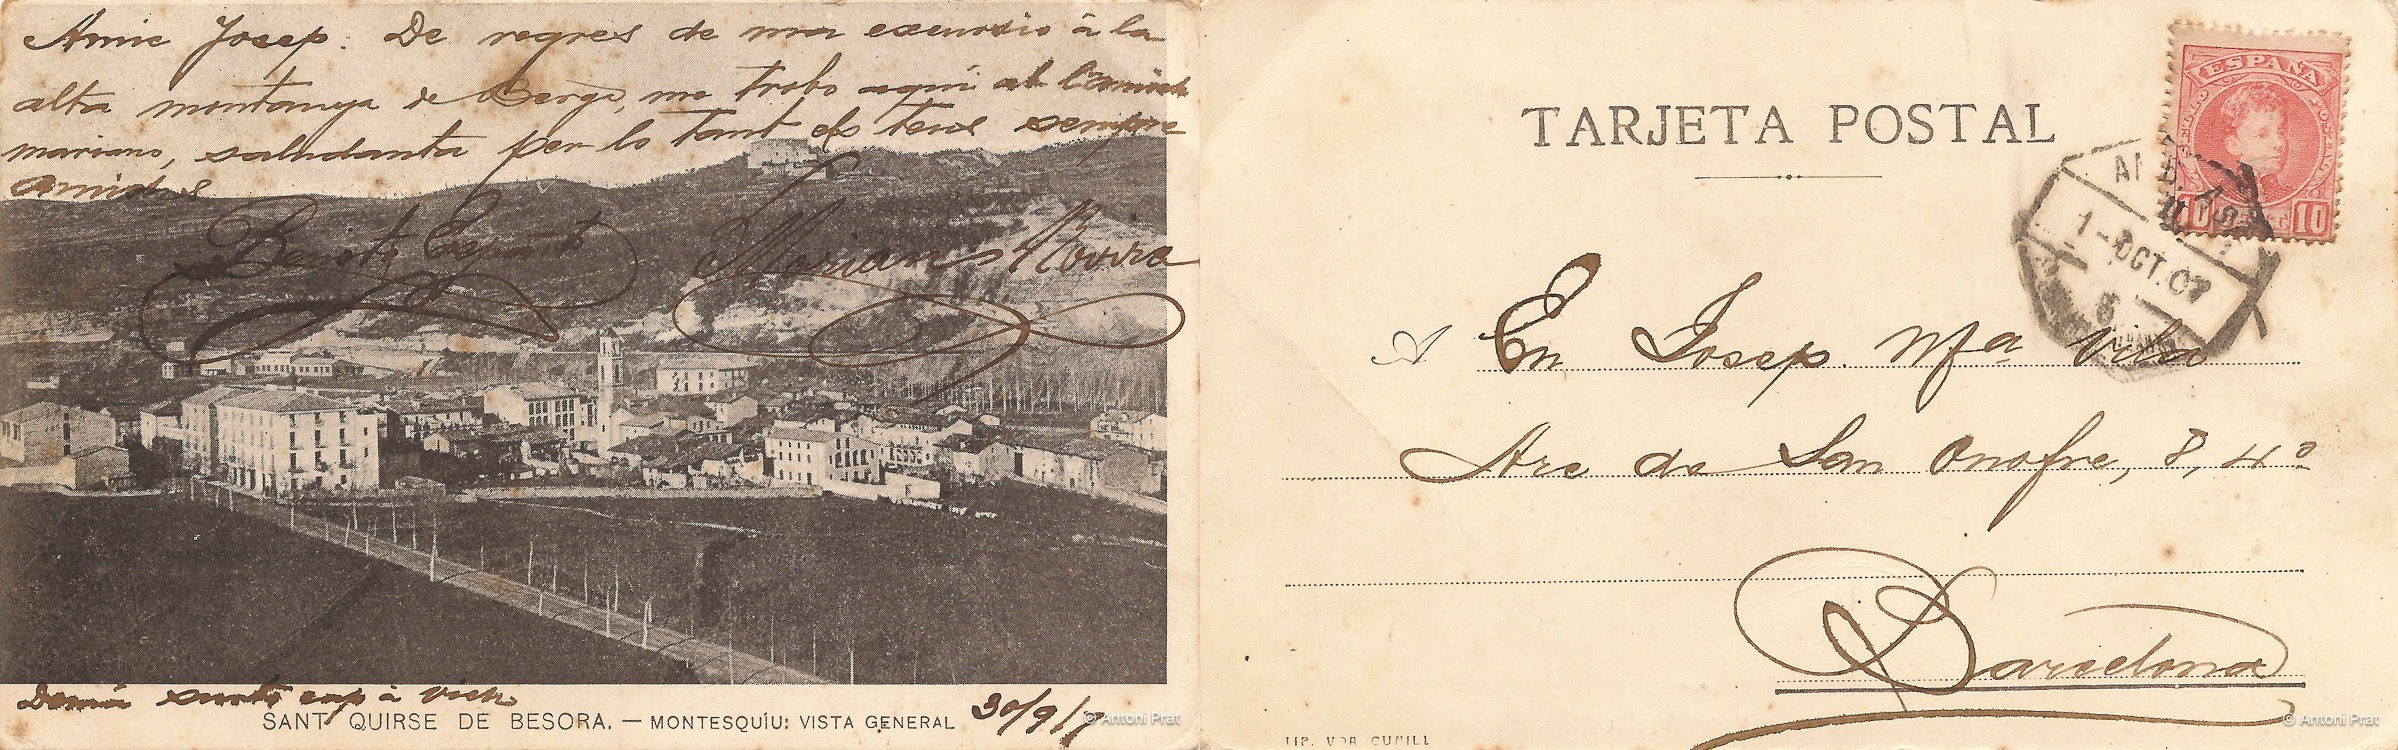 Amic Josep: De regres de ma excursio à la
alta montanya de Berga, me trobo aqui ab l'amich
mariano, saludanta per lo tant els teus sempre
amichs
Benito Español Mariano Rovira
Demá surto cap à vich
SANT QUIRSE DE BESORA. — MONTESQUÍU: VISTA GENERAL
30/9/7
© Antoni Prat
TARJETA POSTAL
ESPAÑA
10 10
1-OCT.07
A En Josep Mª Vila
Arc de San Onofre, 8, 4º
Barcelona
TIP. VDA CUNILL
© Antoni Prat